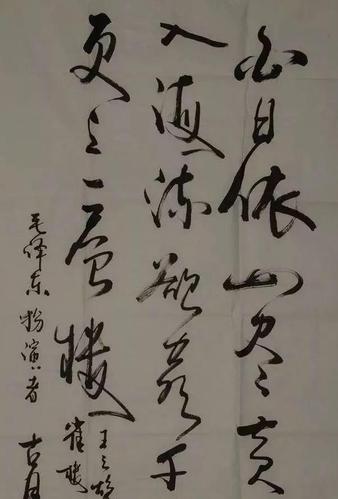 白日依山尽黄
入海流欲穷千
更上一层楼
王之
雀楼
毛泽东扮演者
古月